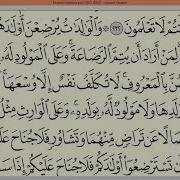 نتُمْ لَا تَعْلَمُونَ ٢٣٢ ۞ وَٱلْوَٰلِدَٰتُ يُرْضِعْنَ أَوْلَٰدَهُ
لِمَنْ أَرَادَ أَن يُتِمَّ ٱلرَّضَاعَةَ وَعَلَى ٱلْمَوْلُودِ لَهُۥ
هُنَّ بِٱلْمَعْرُوفِ لَا تُكَلَّفُ نَفْسٌ إِلَّا وُسْعَهَا
لِدَهَا وَلَا مَوْلُودٌ لَّهُۥ بِوَلَدِهِۦ وَعَلَى ٱلْوَارِثِ مِثْلُ
صَالًا عَن تَرَاضٍ مِّنْهُمَا وَتَشَاوُرٍ فَلَا جُنَاحَ عَ
تَسْتَرْضِعُوٓا۟ أَوْلَٰدَكُمْ فَلَا جُنَاحَ عَلَيْكُمْ إِذَا سَ